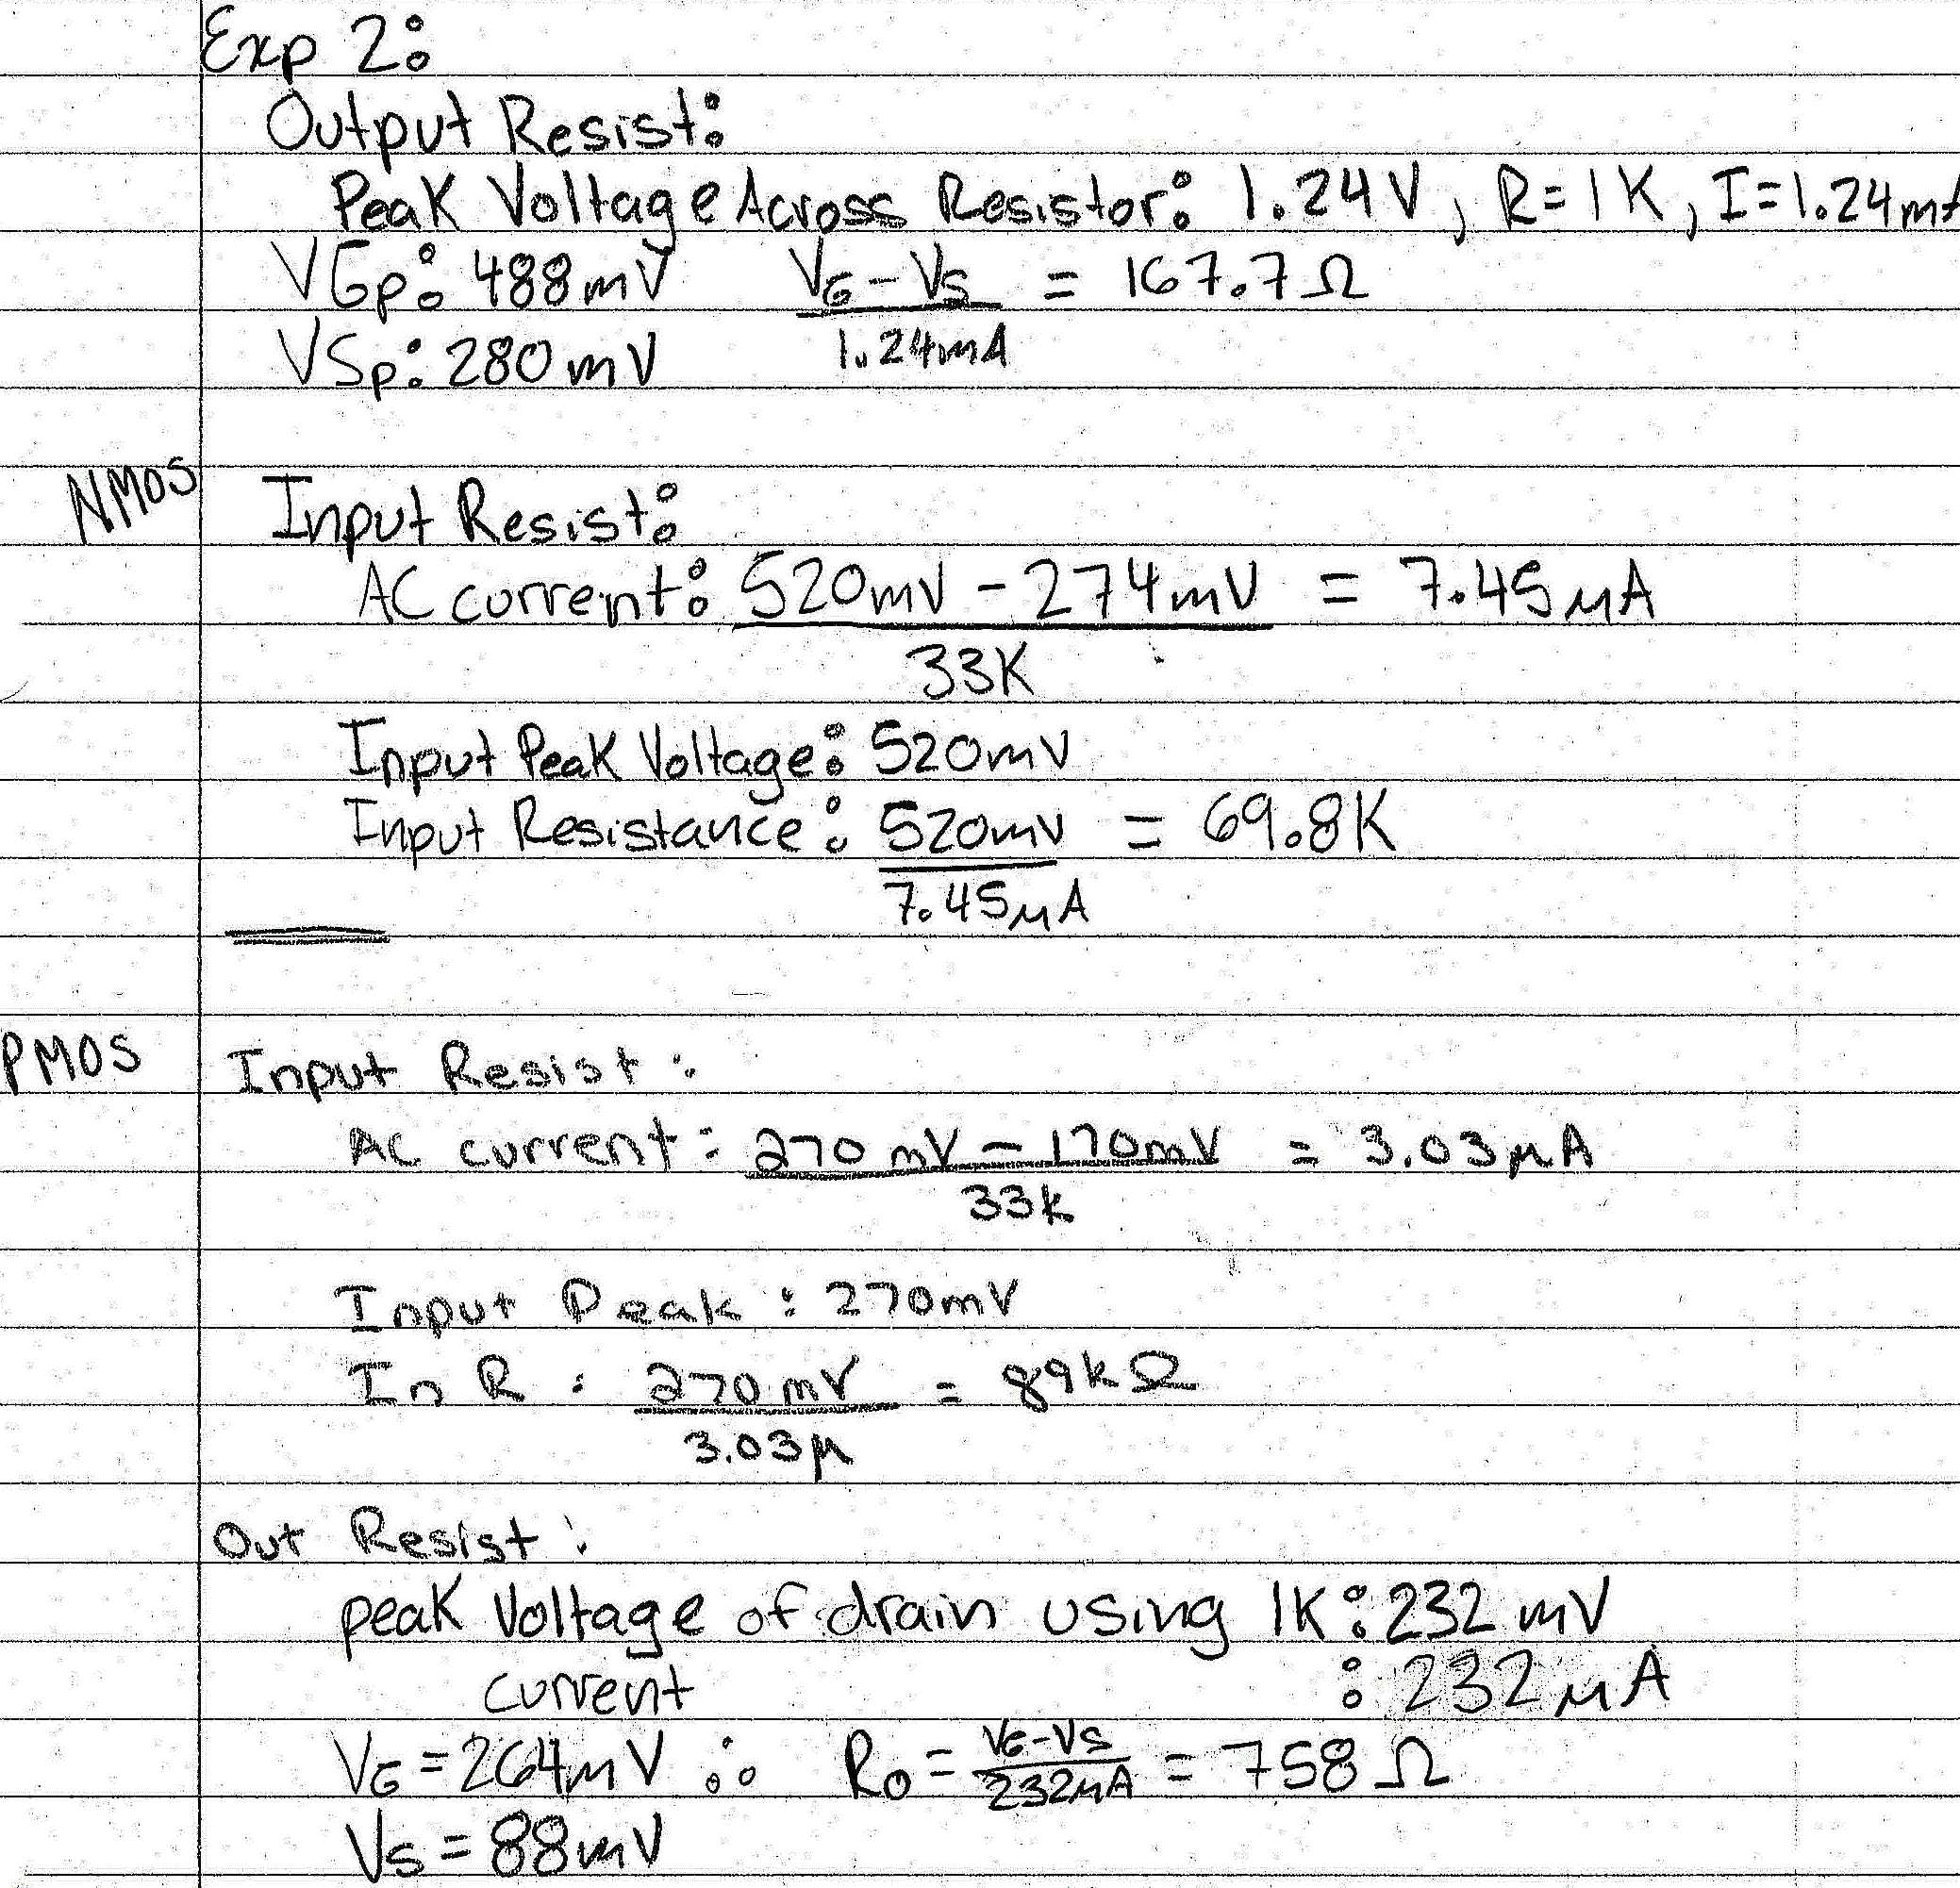 Exp 2:
Output Resist:
Peak Voltage Across Resistor: 1.24V, R=1K, I=1.24mA
VGp: 488mV VG-VS = 167.7Ω
1.24mA
VSp: 280mV
NMOS Input Resist:
AC current: 520mV - 274mV = 7.45μA
33K
Input Peak Voltage: 520mV
Input Resistance: 520mV = 69.8K
7.45μA
PMOS Input Resist:
AC current: 270mV - 170mV = 3.03μA
33k
Input Peak: 270mV
In R: 270mV = 89kΩ
3.03μ
Out Resist:
peak Voltage of drain using 1K: 232mV
current : 232μA
VG = 264mV ∴ RO = VG-VS = 758Ω
232μA
VS = 88mV